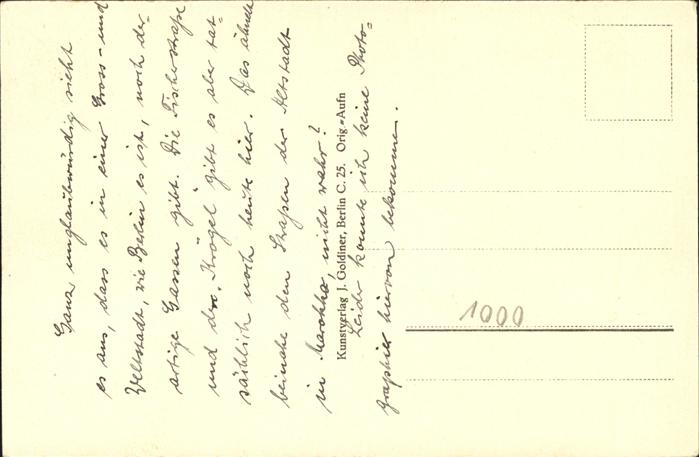 Ganz unglaubwürdig sieht
es aus, dass es in einer Gross- und
Weltstadt, wie Berlin es ist, noch der-
artige Gassen gibt. Die Fischerstraße
und der "Krögel" gibt es aber tat-
sächlich noch heute hier. Das ähnelt
beinahe den Straßen der Altstadt
in Marokko, nicht wahr?
Leider konnte ich keine Photo-
graphier hiervon bekommen.
Kunstverlag J. Goldiner, Berlin C. 25. Orig.=Aufn
1000